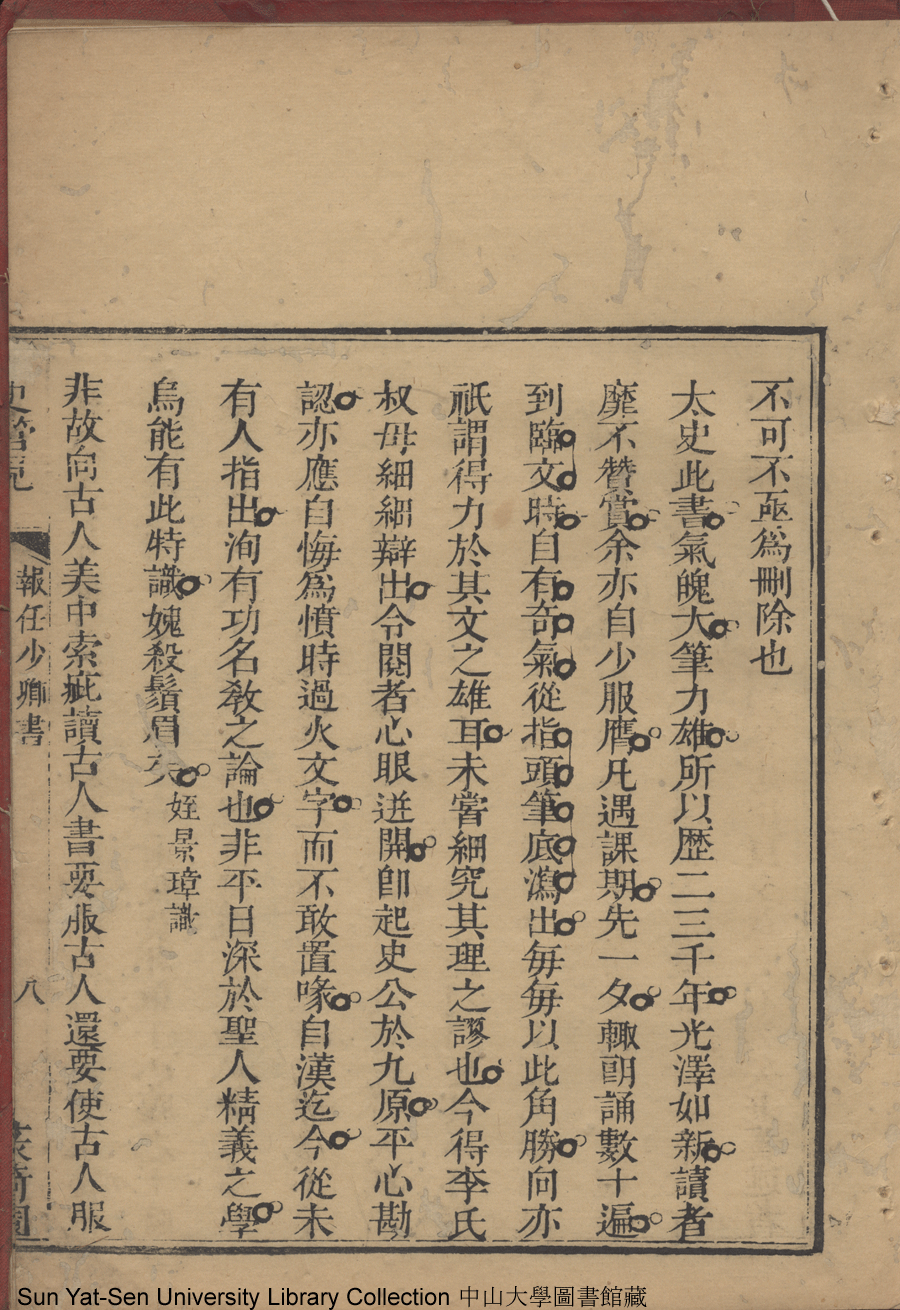 不可不亟為刪除也
太史此書氣魄大筆力雄所以歷二三千年光澤如新讀者
靡不贊賞余亦自少服膺凡遇課期先一夕輙朗誦數十遍
到臨文時自有奇氣從指頭筆底瀉出每每以此角勝向亦
祇謂得力於其文之雄耳未嘗細究其理之謬也今得李氏
叔母細細辯出令閱者心眼迸開卽起史公於九原平心勘
認亦應自悔為憤時過火文字而不敢置喙自漢迄今從未
有人指出洵有功名敎之論也非平日深於聖人精義之學
烏能有此特識媿殺鬚眉矣 姪景璋識
非故向古人美中索疵讀古人書要服古人還要使古人服
報任少卿書
八
Sun Yat-Sen University Library Collection 中山大學圖書館藏